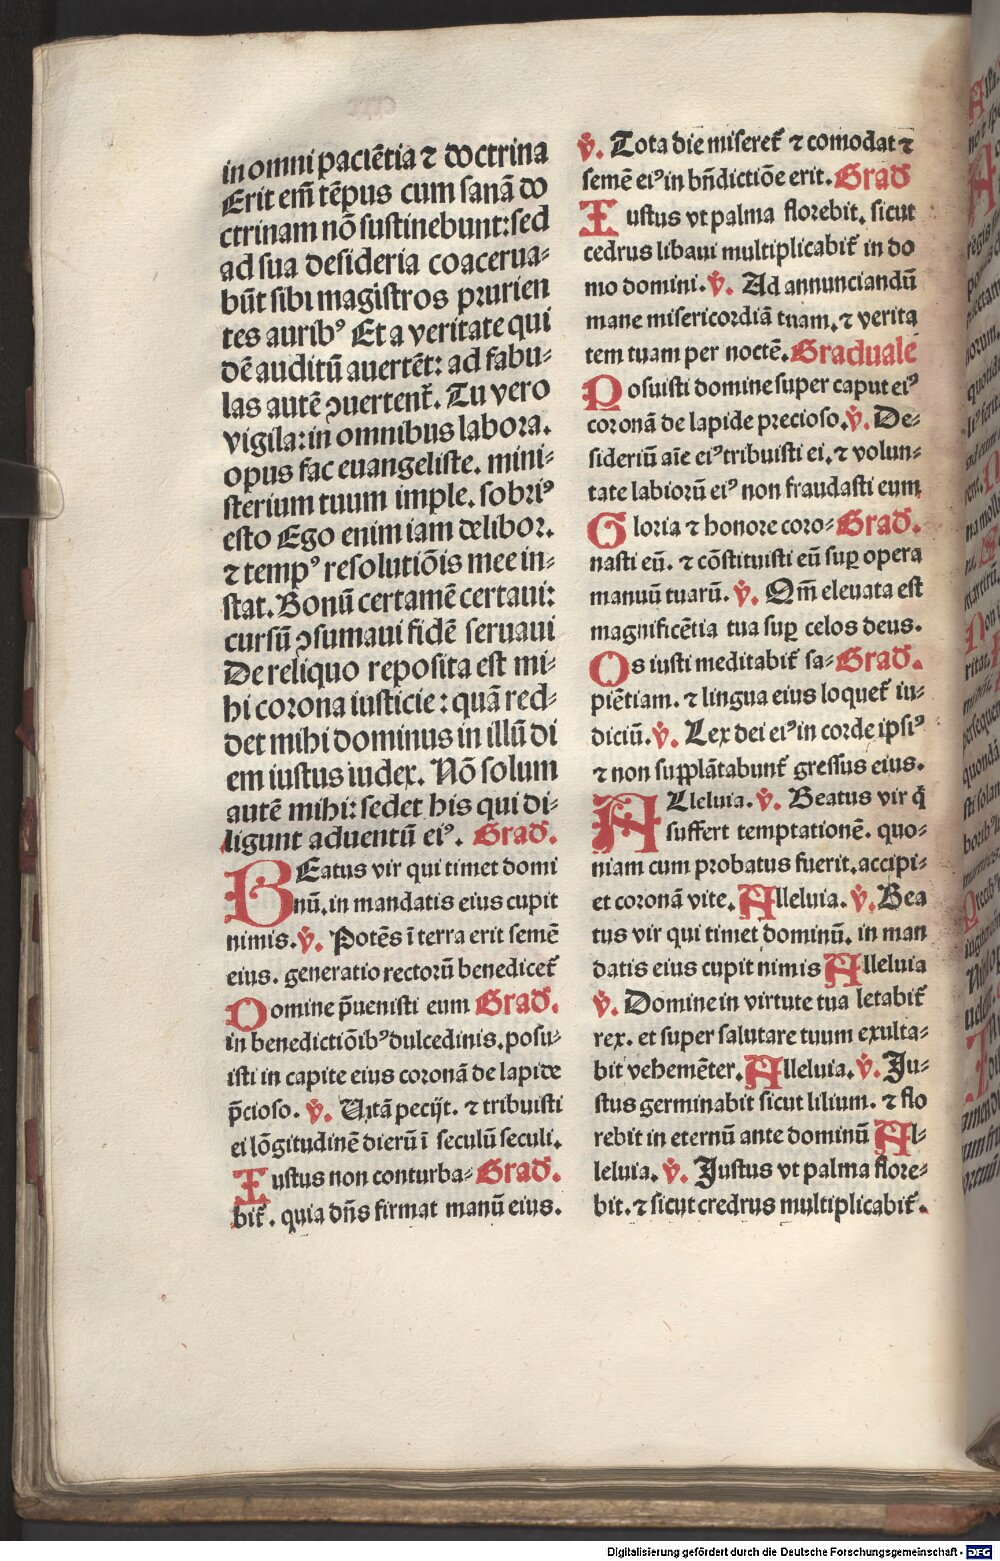 in omni paciētia ⁊ doctrina
Erit em̄ tēpus cum sanā do
ctrinam nō sustinebunt: sed
ad sua desideria coacerua⸗
būt sibi magistros prurien
tes auribꝰ Et a veritate qui
dē auditū auertēt: ad fabu⸗
las autē ꝯuertent᷑. Tu vero
vigila: in omnibus labora.
opus fac euangeliste. mini⸗
sterium tuum imple. sobriꝰ
esto Ego enim iam delibor.
⁊ tempꝰ resolutiōis mee in⸗
stat. Bonū certamē certaui:
cursū ꝯsumaui fidē seruaui
De reliquo reposita est mi⸗
hi corona iusticie: quā red⸗
det mihi dominus in illū di
em iustus iudex. Nō solum
autē mihi: sed et his qui di⸗
ligunt aduentū eiꝰ. Grad̄.
BEatus vir qui timet domi
nū. in mandatis eius cupit
nimis. ℣. Potēs ī terra erit semē
eius. generatio rectorū benedicet᷑
Domine p̄uenisti eum Grad̄.
in benedictiōibꝰ dulcedinis. posu⸗
isti in capite eius coronā de lapide
p̄cioso. ℣. Uitā pecijt. ⁊ tribuisti
ei lōgitudinē dierū ī seculū seculi.
Iustus non conturba⸗ Grad̄.
bit᷑. quia dn̄s firmat manū eius.
℣. Tota die miseret᷑ ⁊ comodat ⁊
semē eiꝰ in bn̄dictiōe erit. Grad̄
Iustus vt palma florebit. sicut
cedrus libani multiplicabit᷑ in do
mo domini. ℣. Ad annunciandū
mane misericordiā tuam. ⁊ verita
tem tuam per noctē. Graduale
Posuisti domine super caput eiꝰ
coronā de lapide precioso. ℣. De⸗
sideriū aīe eiꝰ tribuisti ei. ⁊ volun⸗
tate labiorū eiꝰ non fraudasti eum
Gloria ⁊ honore coro⸗ Grad̄.
nasti eū. ⁊ cōstituisti eū suꝑ opera
manuū tuarū. ℣. Qm̄ eleuata est
magnificētia tua suꝑ celos deus.
Os iusti meditabit᷑ sa⸗ Grad̄.
piētiam. ⁊ lingua eius loquet᷑ iu⸗
diciū. ℣. Lex dei eiꝰ in corde ipsiꝰ
⁊ non supplātabunt᷑ gressus eius.
ALleluia. ℣. Beatus vir q̄
suffert temptationē. quo⸗
niam cum probatus fuerit. accipi⸗
et coronā vite. Alleluia. ℣. Bea
tus vir qui timet dominū. in man
datis eius cupit nimis Alleluia
℣. Domine in virtute tua letabit᷑
rex. et super salutare tuum exulta⸗
bit vehemēter. Alleluia. ℣. Ju⸗
stus germinabit sicut lilium. ⁊ flo
rebit in eternū ante dominū Al⸗
leluia. ℣. Justus vt palma flore⸗
bit. ⁊ sicut credrus multiplicabit᷑.
Digitalisierung gefördert durch die Deutsche Forschungsgemeinschaft - DFG